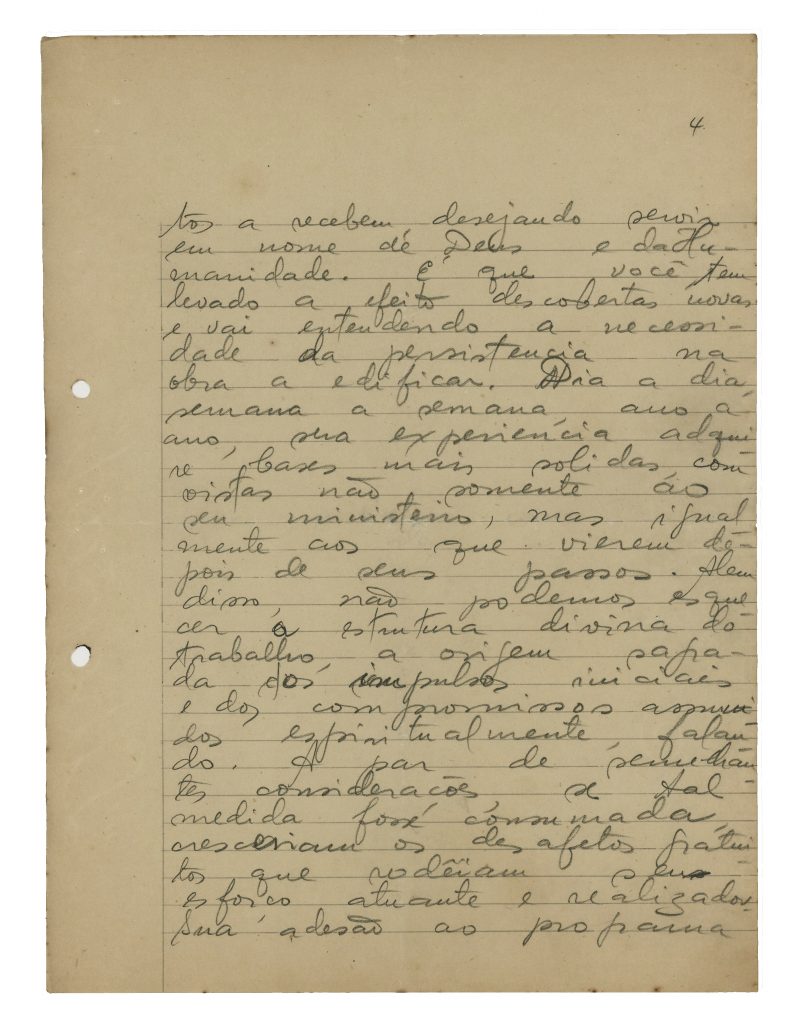 4
tos a recebem desejando servir
em nome de Deus e da Hu-
manidade. É que você tem
levado a efeito descobertas novas
e vai entendendo a necessi-
dade da persistencia na
obra a edificar. Dia a dia,
semana a semana, ano a
ano, sua experiencia adqui
re bases mais solidas, com
vistas não somente ao
seu ministerio, mas igual
mente aos que vierem de-
pois de seus passos. Alem
disso, não podemos esque
cer a estrutura divina do
trabalho, a origem sagra-
da dos impulsos iniciais
e dos compromissos assumi
dos espiritualmente falan
do. A par de semelhan
tes considerações se tal
medida fosse consumada,
cresceriam os desafetos gratui
tos que rodeiam seu
esforço atuante e realizador.
Sua adesão ao programa